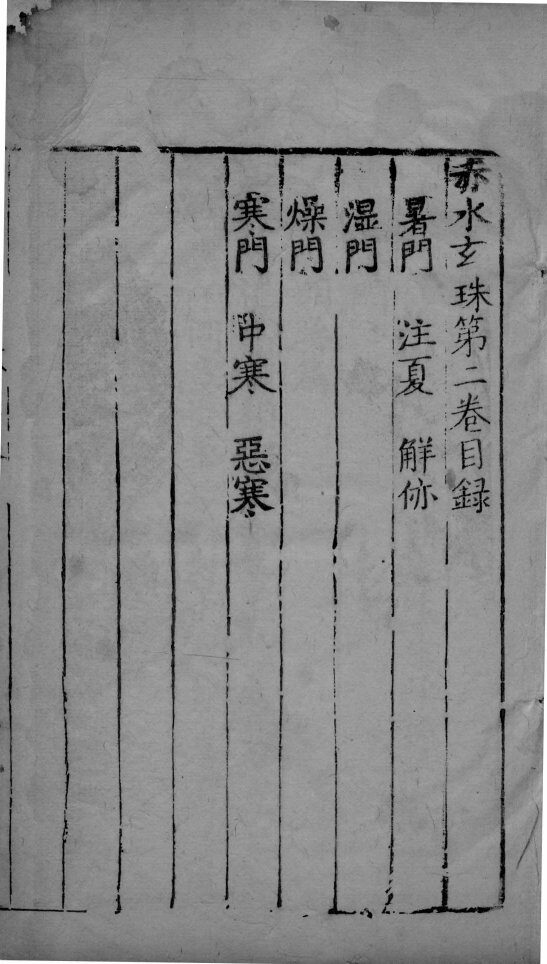 赤水玄珠第二卷目録
暑門 注夏 解㑊
湿門
燥門
寒門 中寒 惡寒